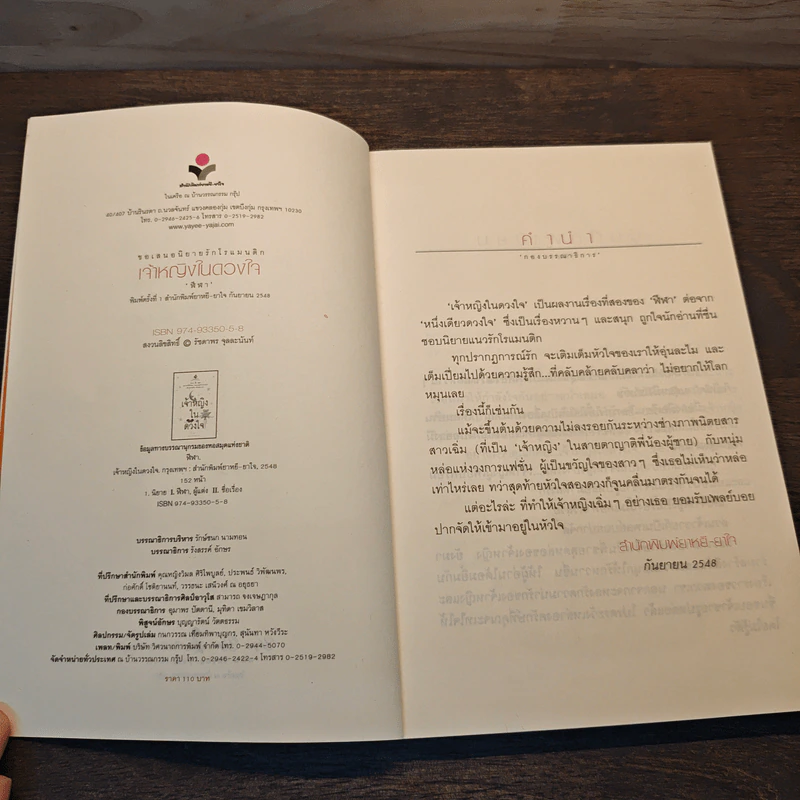 สำนักพิมพ์ยาหยี-ยาใจ
ในเครือ ณ บ้านวรรณกรรม กรุ๊ป
40/407 บ้านรินรดา ถ.นวลจันทร์ แขวงคลองกุ่ม เขตบึงกุ่ม กรุงเทพฯ 10230
โทร. 0-2946-2425-6 โทรสาร 0-2519-2982
www.yayee-yajai.com
ขอเสนอนิยายรักโรแมนติก
เจ้าหญิงในดวงใจ
'ฬีฬา'
พิมพ์ครั้งที่ 1 สำนักพิมพ์ยาหยี-ยาใจ กันยายน 2548
ISBN 974-93350-5-8
สงวนลิขสิทธิ์ © รัชดาพร จุลละนันท์
เจ้าหญิง
ใน
ดวงใจ
ข้อมูลทางบรรณานุกรมของหอสมุดแห่งชาติ
ฬีฬา.
เจ้าหญิงในดวงใจ. กรุงเทพฯ : สำนักพิมพ์ยาหยี-ยาใจ, 2548
152 หน้า
1. นิยาย I. ฬีฬา, ผู้แต่ง II. ชื่อเรื่อง
ISBN 974-93350-5-8
บรรณาธิการบริหาร รักษ์ชนก นามทอน
บรรณาธิการ รังสรรค์ อักษร
ที่ปรึกษาสำนักพิมพ์ คุณหญิงวิมล ศิริไพบูลย์, ประพนธ์ วิพัฒนพร,
ก่อศักดิ์ โชติยานนท์, วรรธนะ เสนีวงศ์ ณ อยุธยา
ที่ปรึกษาและบรรณาธิการศิลป์อาวุโส สามารถ จงเจษฎากุล
กองบรรณาธิการ อุมาพร ปัดตานี, มุทิตา เขมวิลาส
พิสูจน์อักษร บุญญารัตน์ วัตตธรรม
ศิลปกรรม/จัดรูปเล่ม กนกวรรณ เทียมทิพาบุญกร, สุนันทา หวังวีระ
เพลท/พิมพ์ บริษัท วิศวนาถการพิมพ์ จำกัด โทร. 0-2944-5070
จัดจำหน่ายทั่วประเทศ ณ บ้านวรรณกรรม กรุ๊ป โทร. 0-2946-2422-4 โทรสาร 0-2519-2982
ราคา 110 บาท
คำนำ
'กองบรรณาธิการ'
'เจ้าหญิงในดวงใจ' เป็นผลงานเรื่องที่สองของ 'ฬีฬา' ต่อจาก
'หนึ่งเดียวดวงใจ' ซึ่งเป็นเรื่องหวาน ๆ และสนุก ถูกใจนักอ่านที่ชื่น
ชอบนิยายแนวรักโรแมนติก
ทุกปรากฏการณ์รัก จะเติมเต็มหัวใจของเราให้อุ่นละไม และ
เต็มเปี่ยมไปด้วยความรู้สึก...ที่คลับคล้ายคลับคลาว่า ไม่อยากให้โลก
หมุนเลย
เรื่องนี้ก็เช่นกัน
แม้จะขึ้นต้นด้วยความไม่ลงรอยกันระหว่างช่างภาพนิตยสาร
สาวเฉิ่ม (ที่เป็น 'เจ้าหญิง' ในสายตาญาติพี่น้องผู้ชาย) กับหนุ่ม
หล่อแห่งวงการแฟชั่น ผู้เป็นขวัญใจของสาว ๆ ซึ่งเธอไม่เห็นว่าหล่อ
เท่าไหร่เลย ทว่าสุดท้ายหัวใจสองดวงก็จูนคลื่นมาตรงกันจนได้
แต่อะไรล่ะ ที่ทำให้เจ้าหญิงเฉิ่มๆ อย่างเธอ ยอมรับเพลย์บอย
ปากจัดให้เข้ามาอยู่ในหัวใจ
สำนักพิมพ์ยาหยี-ยาใจ
กันยายน 2548